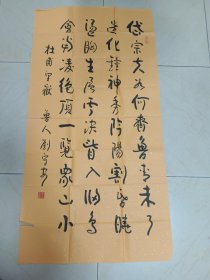 岱宗夫如何齊魯青未了
造化鍾神秀陰陽割昏曉
盪胸生層雲決眥入歸鳥
會當凌絕頂一覽眾山小
杜甫望嶽 魯人劉